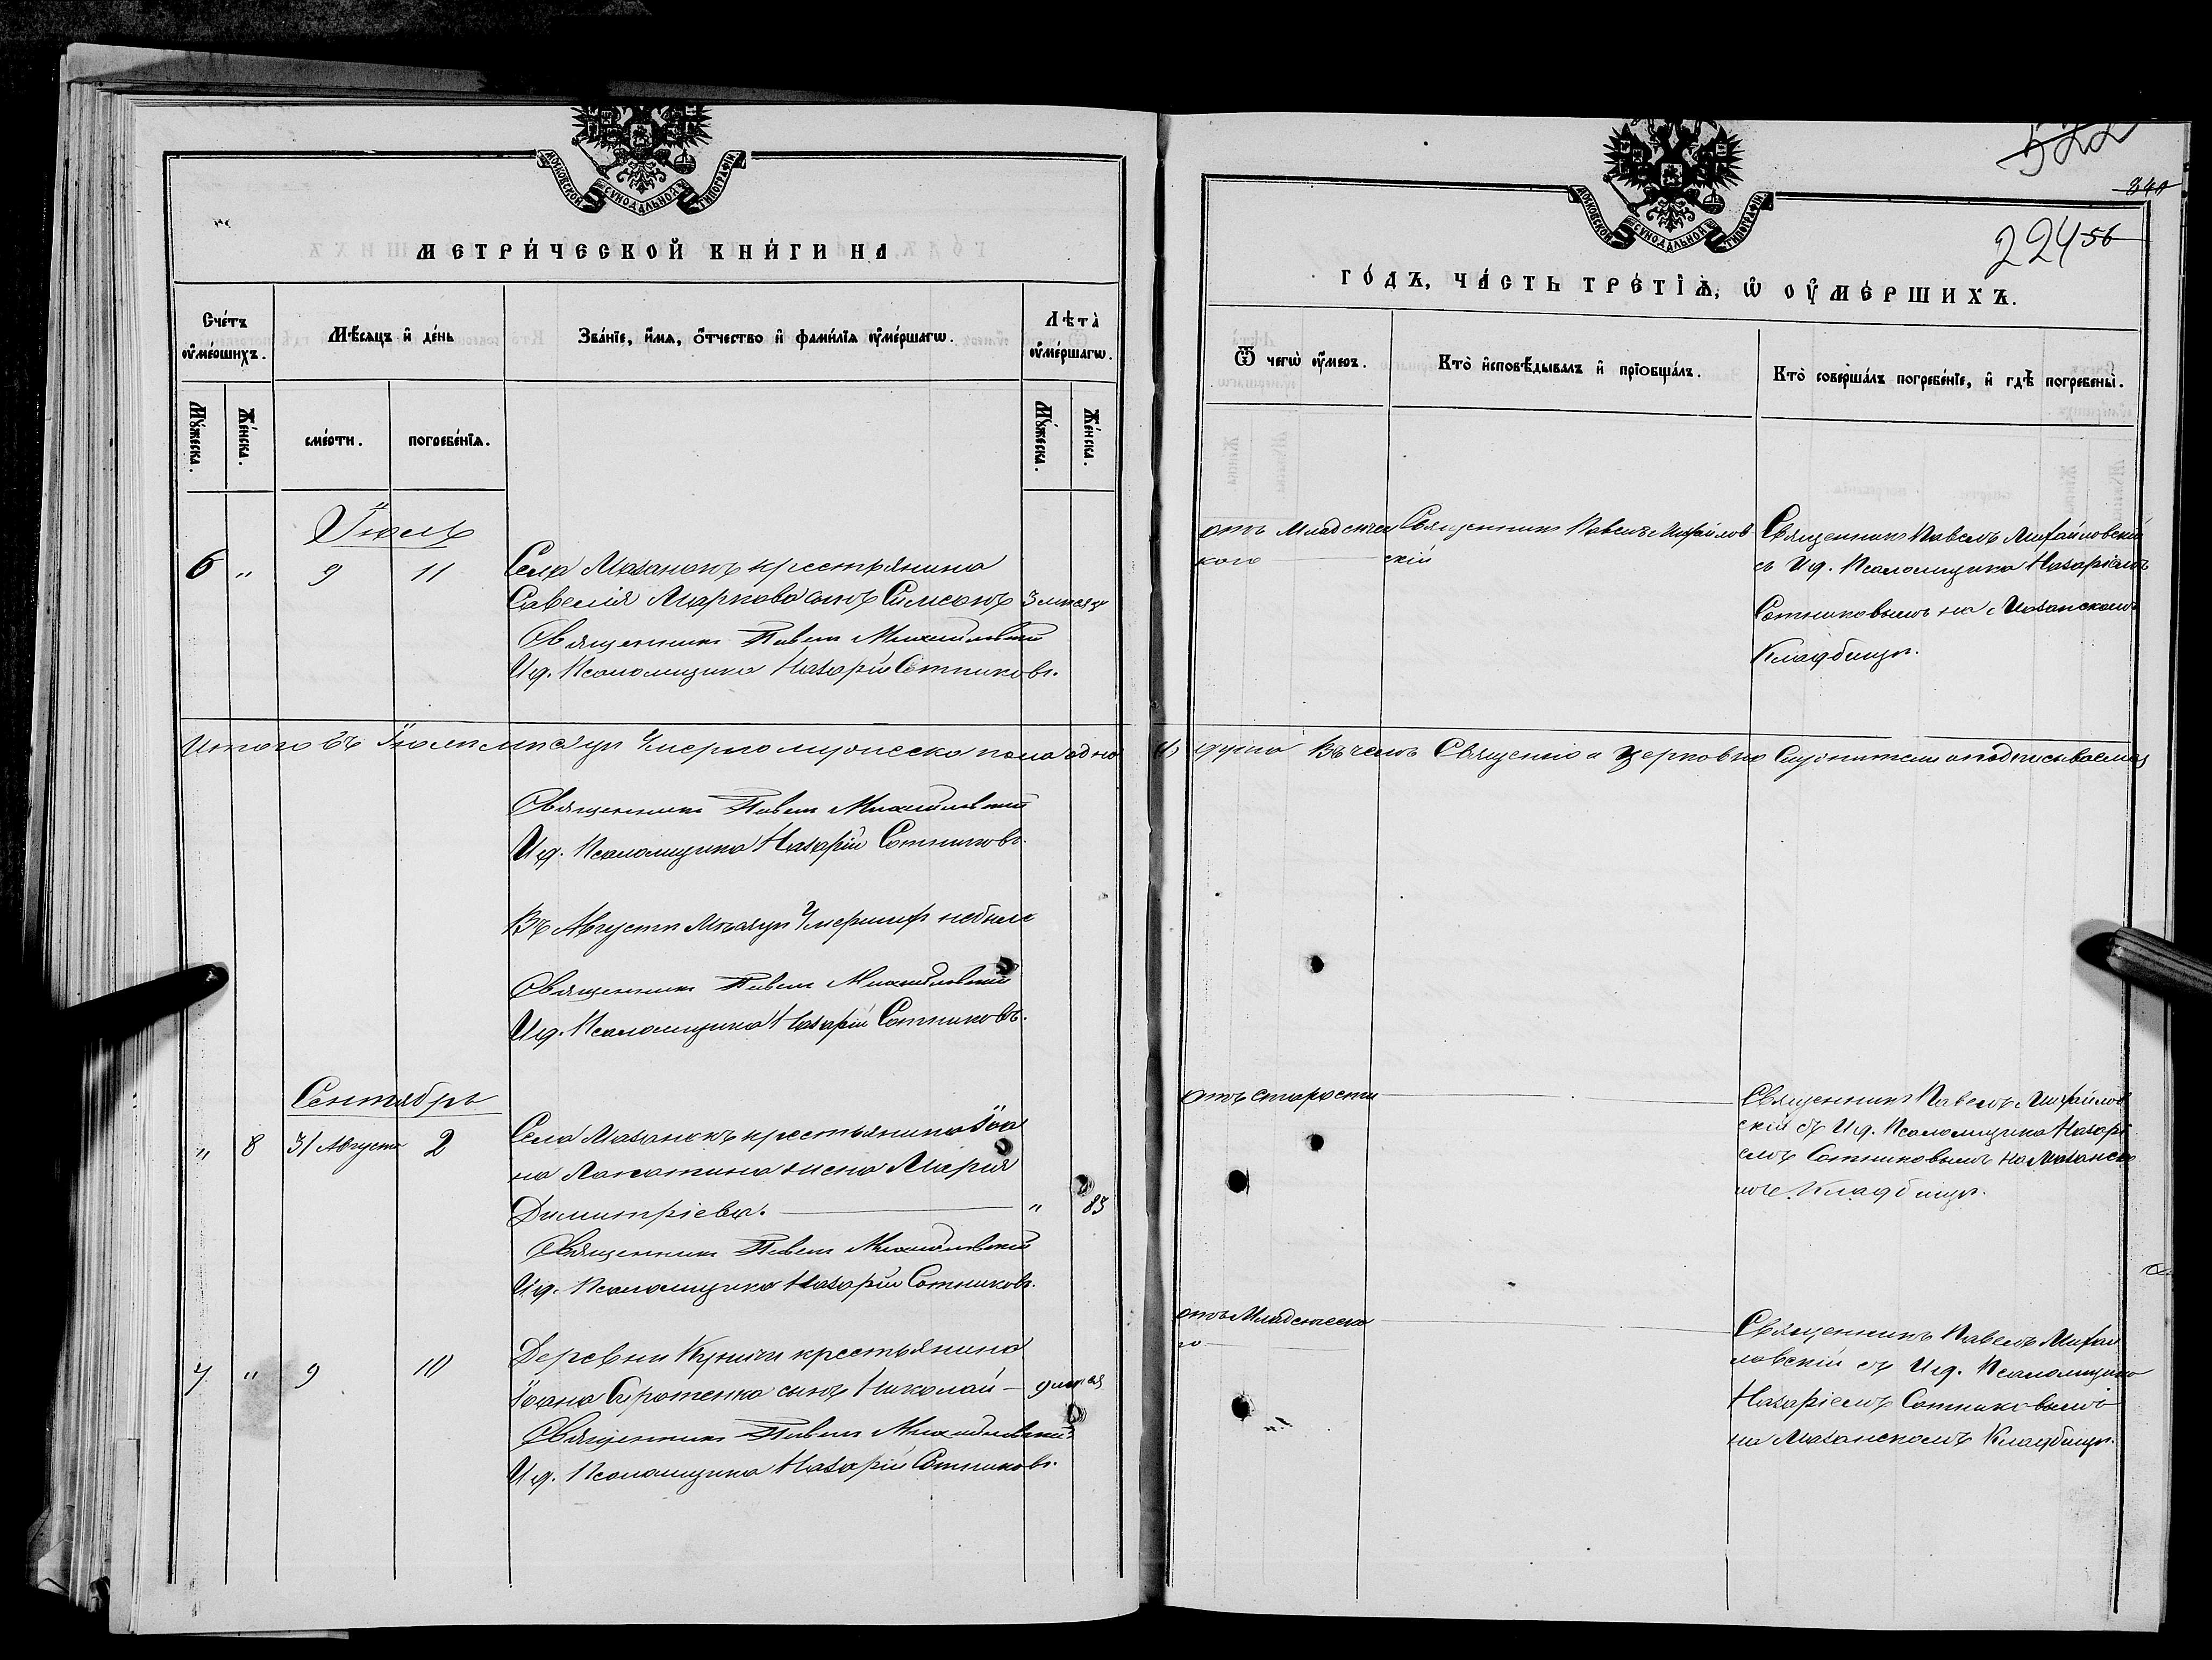 МОСКОВСКОЙ СУНОДАЛЬНОЙ ТИПОГРАФІИ
МЕТРИ́ЧЕСКОЙ КНИ́ГИ НА
Сче́тъ ᲂу҆ме́ршихъ.
Мѣ́сяцъ и҆ де́нь
Зва́нїе, и҆́мѧ, ѻ҆́тчество и҆ фами́лїѧ ᲂу҆ме́ршагѡ.
Лѣта̀ ᲂу҆ме́ршагѡ.
Му́жеска.
Же́нска.
сме́рти.
погребе́нїѧ.
Му́жеска.
Же́нска.
Іюль
6 " 9 11
Села Мазанокъ крестьянина
Савелія Маркова сынъ Симеонъ 3 мѣсяц
Священникъ Павелъ Михайловскій
И. д. Псаломщика Назарій Сотниковъ.
Итого въ Іюлѣ мѣсяцѣ Умерло мужеска пола одно
Священникъ Павелъ Михайловскій
И. д. Псаломщика Назарій Сотниковъ.
Въ Августѣ Мѣсяцѣ Умершихъ небыло
Священникъ Павелъ Михайловскій
И. д. Псаломщика Назарій Сотниковъ.
Сентябрь
" 8 31 Августа 2
Села Мазанокъ крестьянина Іоа
на Лопатина жена Марія
Димитріева. " 83
Священникъ Павелъ Михайловскій
И. д. Псаломщика Назарій Сотниковъ.
7 " 9 10
Деревни крестьянина
Іоана Сиротенка сынъ Николай 9 мѣсяц
Священникъ Павелъ Михайловскій
И. д. Псаломщика Назарій Сотниковъ.
МОСКОВСКОЙ СУНОДАЛЬНОЙ ТИПОГРАФІИ
522
224 56
ГО́ДЪ, ЧА́СТЬ ТРЕ́ТЇѦ, Ѡ҆ ОУ҆МЕ́РШИХЪ.
Ѿ чегѡ̀ ᲂу҆́меръ.
Кто̀ и҆сповѣ́дывалъ и҆ прїѡбща́лъ.
Кто̀ соверша́лъ погребе́нїе, и҆ гдѣ̀ погребены̀.
отъ Младенчес
каго
Священникъ Павелъ Михайлов
скій
Священникъ Павелъ Михайловскій
съ И. д. Псаломщика Назаріемъ
Сотниковымъ на Мазанскомъ
Кладбищѣ.
душа Въ чемъ Священно и Церковно Служители и подписываемся
отъ старости
Священникъ Павелъ Михайлов
скій съ И. д. Псаломщика Назарі
емъ Сотниковымъ на Мазанско
мъ Кладбищѣ.
отъ Младенческа
го
Священникъ Павелъ Михай
ловскій съ И. д. Псаломщика
Назаріемъ Сотниковымъ
на Мазанскомъ Кладбищѣ.